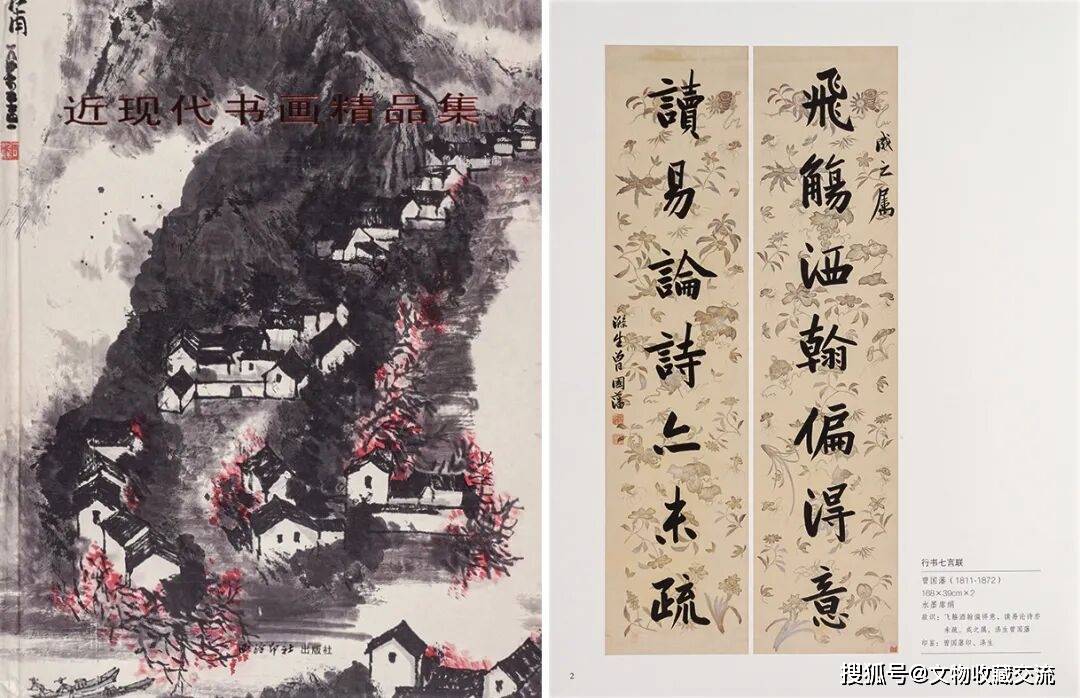 近现代书画精品集
西泠印社 出版社
飛觴洒翰偏得意
之属
讀易論詩亦未疏
滌生曾國藩
行书七言联
曾国藩（1811-1872）
168×39cm×2
水墨库绢
款识：飞觞洒翰偏得意、读易论诗亦
未疏。之属，涤生曾国藩
印鉴：曾国藩印、涤生
2
搜狐号@文物收藏交流